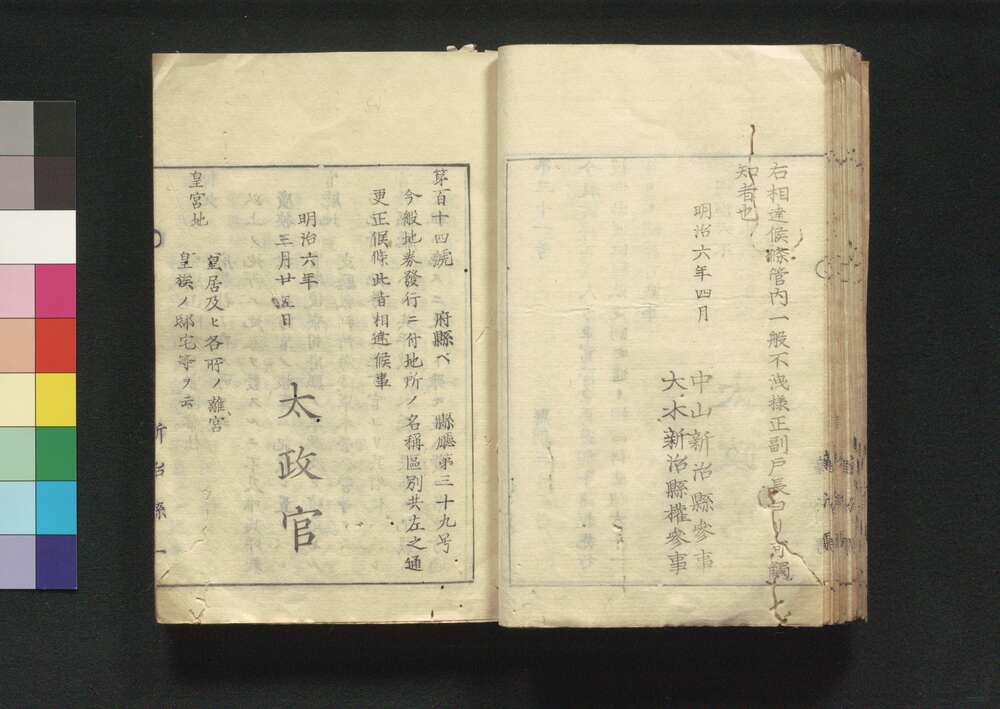 右相達候條管内一般不洩様正副戸長ヨリ可觸
知者也
明治六年四月
中山新治縣參事
大木新治縣權參事
第百十四號 府縣ヘ 縣廳第三十九号
今般地券發行ニ付地所ノ名稱區別共左之通
更正候條此旨相達候事
明治六年
三月廿五日
太政官
皇宮地
皇居及ヒ各所ノ離宮
皇族ノ邸宅等ヲ云
新治縣